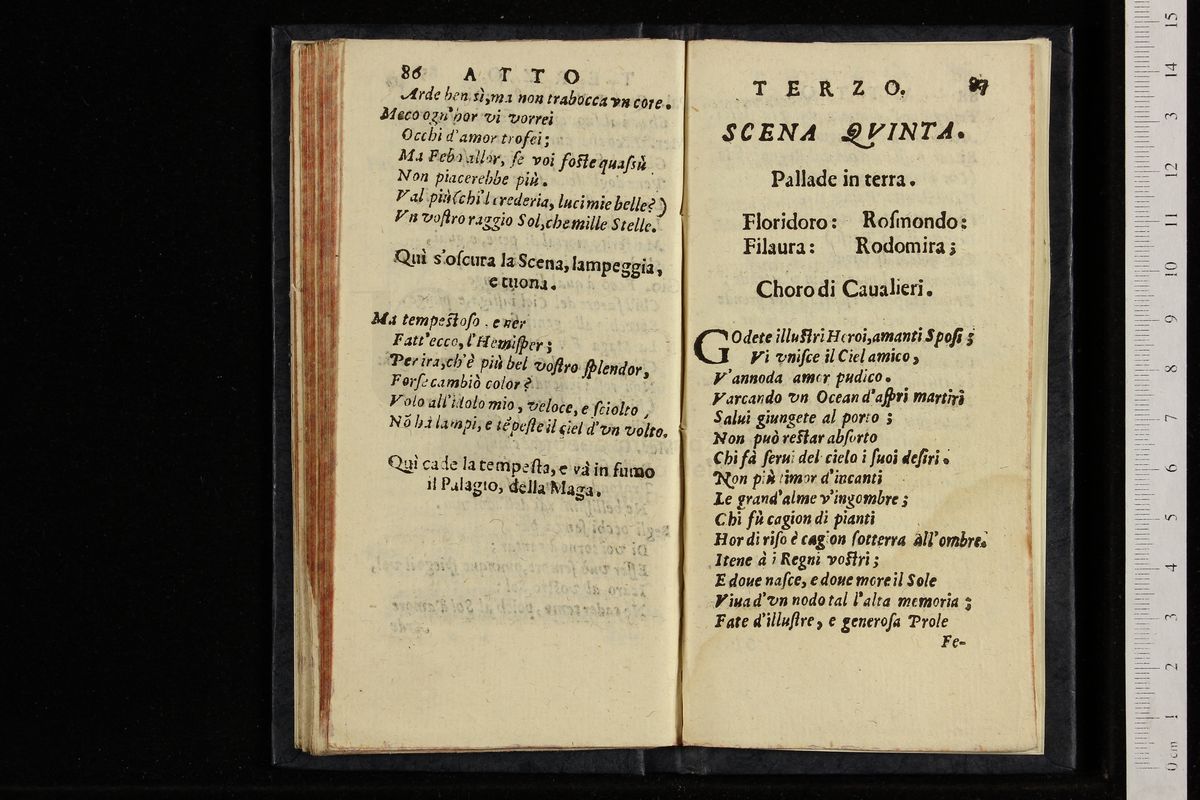 86 ATTO
Arde ben sì, ma non trabocca vn core.
Meco ogn'hor vi vorrei
Occhi d'amor trofei;
Ma Febo allor, se voi foste quassù
Non piacerebbe più.
Val più (chi'l crederia, luci mie belle?)
Vn vostro raggio Sol, che mille Stelle.
Quì s'oscura la Scena, lampeggia,
e tuona.
Ma tempestoso, e ner
Fatt'ecco, l'Hemisper;
Per ira, ch'è più bel vostro splendor,
Forse cambiò color?
Volo all'idolo mio, veloce, e sciolto,
Nõ hà lampi, e tẽpeste il ciel d'vn volto.
Quì cade la tempesta, e và in fumo
il Palagio, della Maga.
TERZO. 87
SCENA QVINTA.
Pallade in terra.
Floridoro: Rosmondo:
Filaura: Rodomira;
Choro di Caualieri.
GOdete illustri Heroi, amanti Sposi;
Vi vnisce il Ciel amico,
V'annoda amor pudico.
Varcando vn Ocean d'aspri martiri
Salui giungete al porto;
Non può restar absorto
Chi fà serui del cielo i suoi desiri.
Non più timor d'incanti
Le grand'alme v'ingombre;
Chi fù cagion di pianti
Hor di riso è cagion sotterra all'ombre.
Itene à i Regni vostri;
E doue nasce, e doue more il Sole
Viua d'vn nodo tal l'alta memoria;
Fate d'illustre, e generosa Prole
Fe-
15
14
3
12
11
10
9
8
7
6
5
4
3
2
1
0 cm